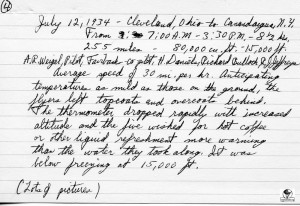 4
July 12, 1934 - Cleveland, Ohio to Canandaigua, N.Y.
From 7:00 A.M - 3:30 P.M - 8½ hrs
255 miles - 80,000 cu. ft. - 15,000 ft.
A.R. Weigel, Pilot, to pilot, H. Daniels, Richard Bullock R. Jeffreys
Average speed of 30 mi. per hr. Anticipating
temperatures as mild as those on the ground, the
flyers left topcoats and overcoats behind.
The thermometer dropped rapidly with increased
altitude and the five wished for hot coffee
or other liquid refreshment more warming
than the water they took along. It was
below freezing at 15,000 ft.
(Lots of pictures)